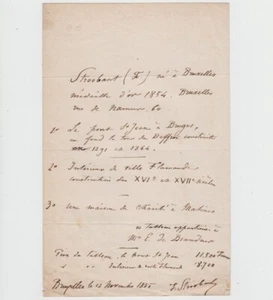 Stroobant (F) né à Bruxelles
médaille d'or 1854. Bruxelles
rue de Namur 60
1° Le pont St Jean à Bruges,
au fond la tour du Beffroi construite
en 1291 et 1364.
2° Intérieur de ville Flamande
constructions des XVIe et XVIIe siècles
3° une maison de charité à Malines
ce tableau appartient à
Mr E. de
Prix du tableau, le pont St Jean
" "
Bruxelles le 12 Novembre 1855
F. Stroobant